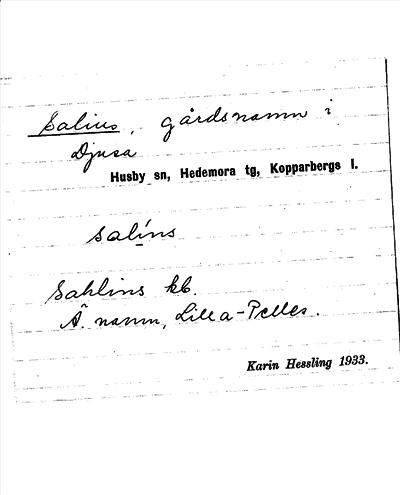 Salins, gårdsnamn i
Djusa
Husby sn, Hedemora tg, Kopparbergs l.
salíns
Sahlins kb.
Ä. namn, Lilla-Pelles.
Karin Hessling 1933.